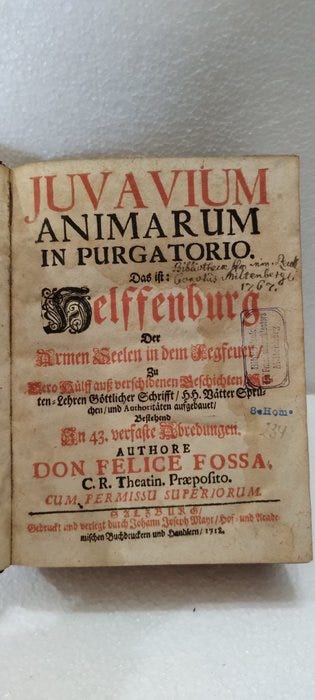 JUVAVIUM
ANIMARUM
IN PURGATORIO.
Das ist:
Bibliotheca
Miltenberg
1767.
Helffenburg
Der
Armen Seelen in dem Fegfeuer/
Zu
Dero Hülff auß verschidenen Geschichten
ten-Lehren Göttlicher Schrifft/ HH. Vätter Sprü-
chen/ und Authoritäten aufgebauet/
Bestehend
In 43. verfaste Abredungen.
8. Hom.
234
AUTHORE
DON FELICE FOSSA,
C. R. Theatin. Præposito.
CUM PERMISSU SUPERIORUM.
SALZBURG/
Gedruckt und verlegt durch Johann Joseph Mayr/ Hof- und Acade-
mischen Buchdruckern und Handlern/ 1718.